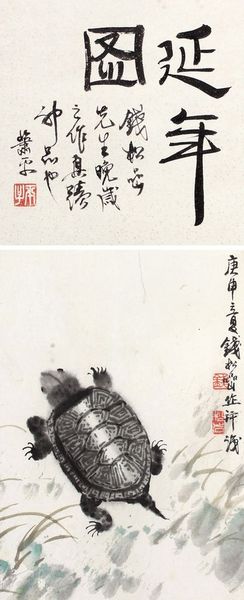 延年
图
錢松喦
先生晚歲
之作真蹟
神品也
蕭平
庚申立夏錢松喦作併識